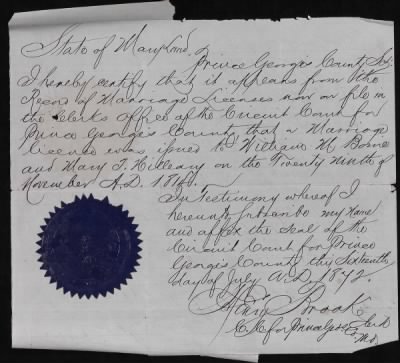 State of Maryland.
Prince Georges County, Sct,
I hereby certify that it appears from the
Record of Marriage Licenses now on file in
the Clerks Office of the Circuit Court for
Prince Georges County, that a Marriage
licence was issued to William M Bowe
and Mary T. Hilleary on the Twenty ninth of
November A.D.
In Testimony whereof I
hereunto subscribe my name
and affix the seal of the
Circuit Court for Prince
Georges County this Sixteenth
day of July A.D. 1872.
Brooke
for Prince Geos
Md.